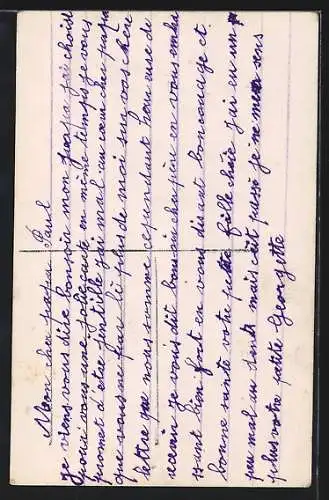 Mon cher papa Paul
je viens vous dire bonsoir mon papa j'ai choisi
pour vous une jolie carte en même temps je vous
promet d'etre gentille j'ai mal au cœur cher papa
que vous ne par li plus de moi sur vos chere
lettre nous somme cependant heureuse de
recevoir je vous dit bonsoir cher père en vous embra
ssant bien fort en vous disant bon courage et
bonne santé votre petite fille chérie j'ai eu un
peu mal au dents mais c'est passé je ne m'en sens
plus votre petite Georgette